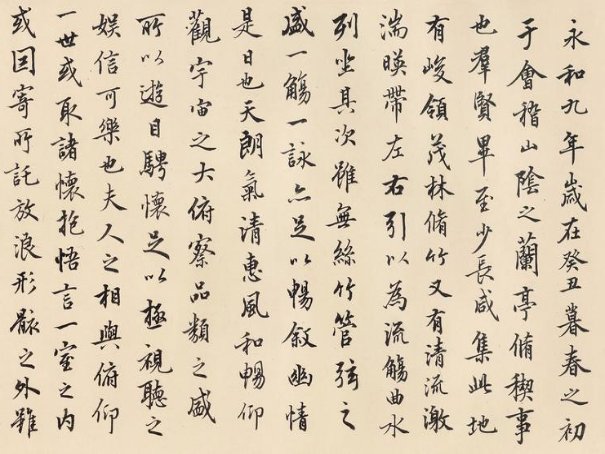 永和九年歲在癸丑暮春之初
于會稽山陰之蘭亭脩稧事
也羣賢畢至少長咸集此地
有峻領茂林脩竹又有清流激
湍暎帶左右引以為流觴曲水
列坐其次雖無絲竹管弦之
盛一觴一詠亦足以暢敘幽情
是日也天朗氣清惠風和暢仰
觀宇宙之大俯察品類之盛
所以遊目騁懷足以極視聽之
娛信可樂也夫人之相與俯仰
一世或取諸懷抱悟言一室之內
或因寄所託放浪形骸之外雖